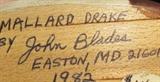 MALLARD DRAKE
BY John Blades
EASTON, MD. 21601
1982